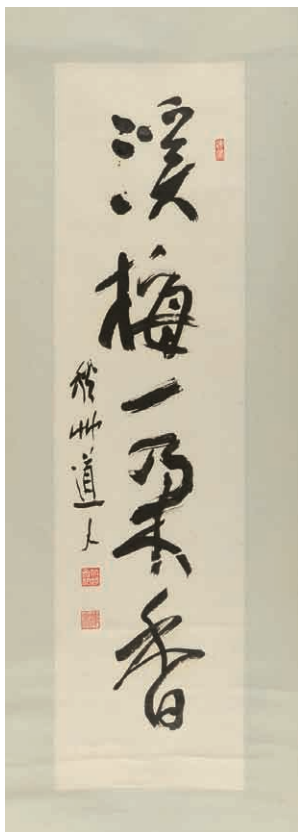 渓梅一朶香
穆州道人